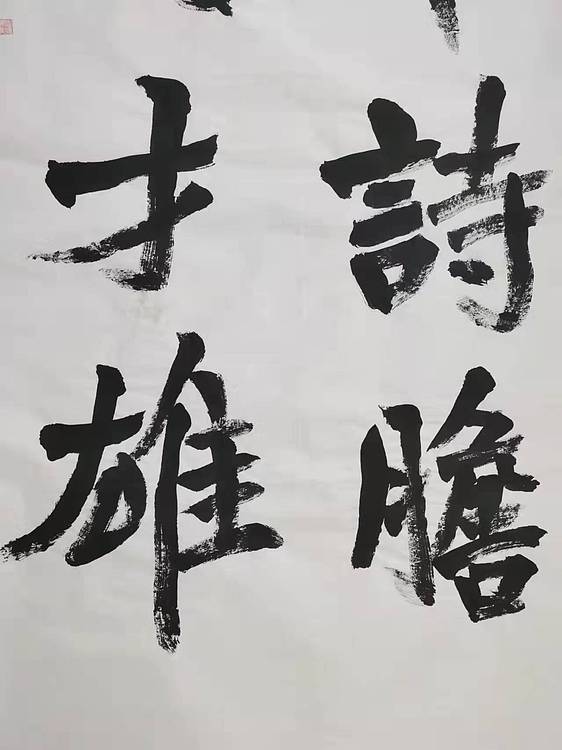 詩膽
才雄